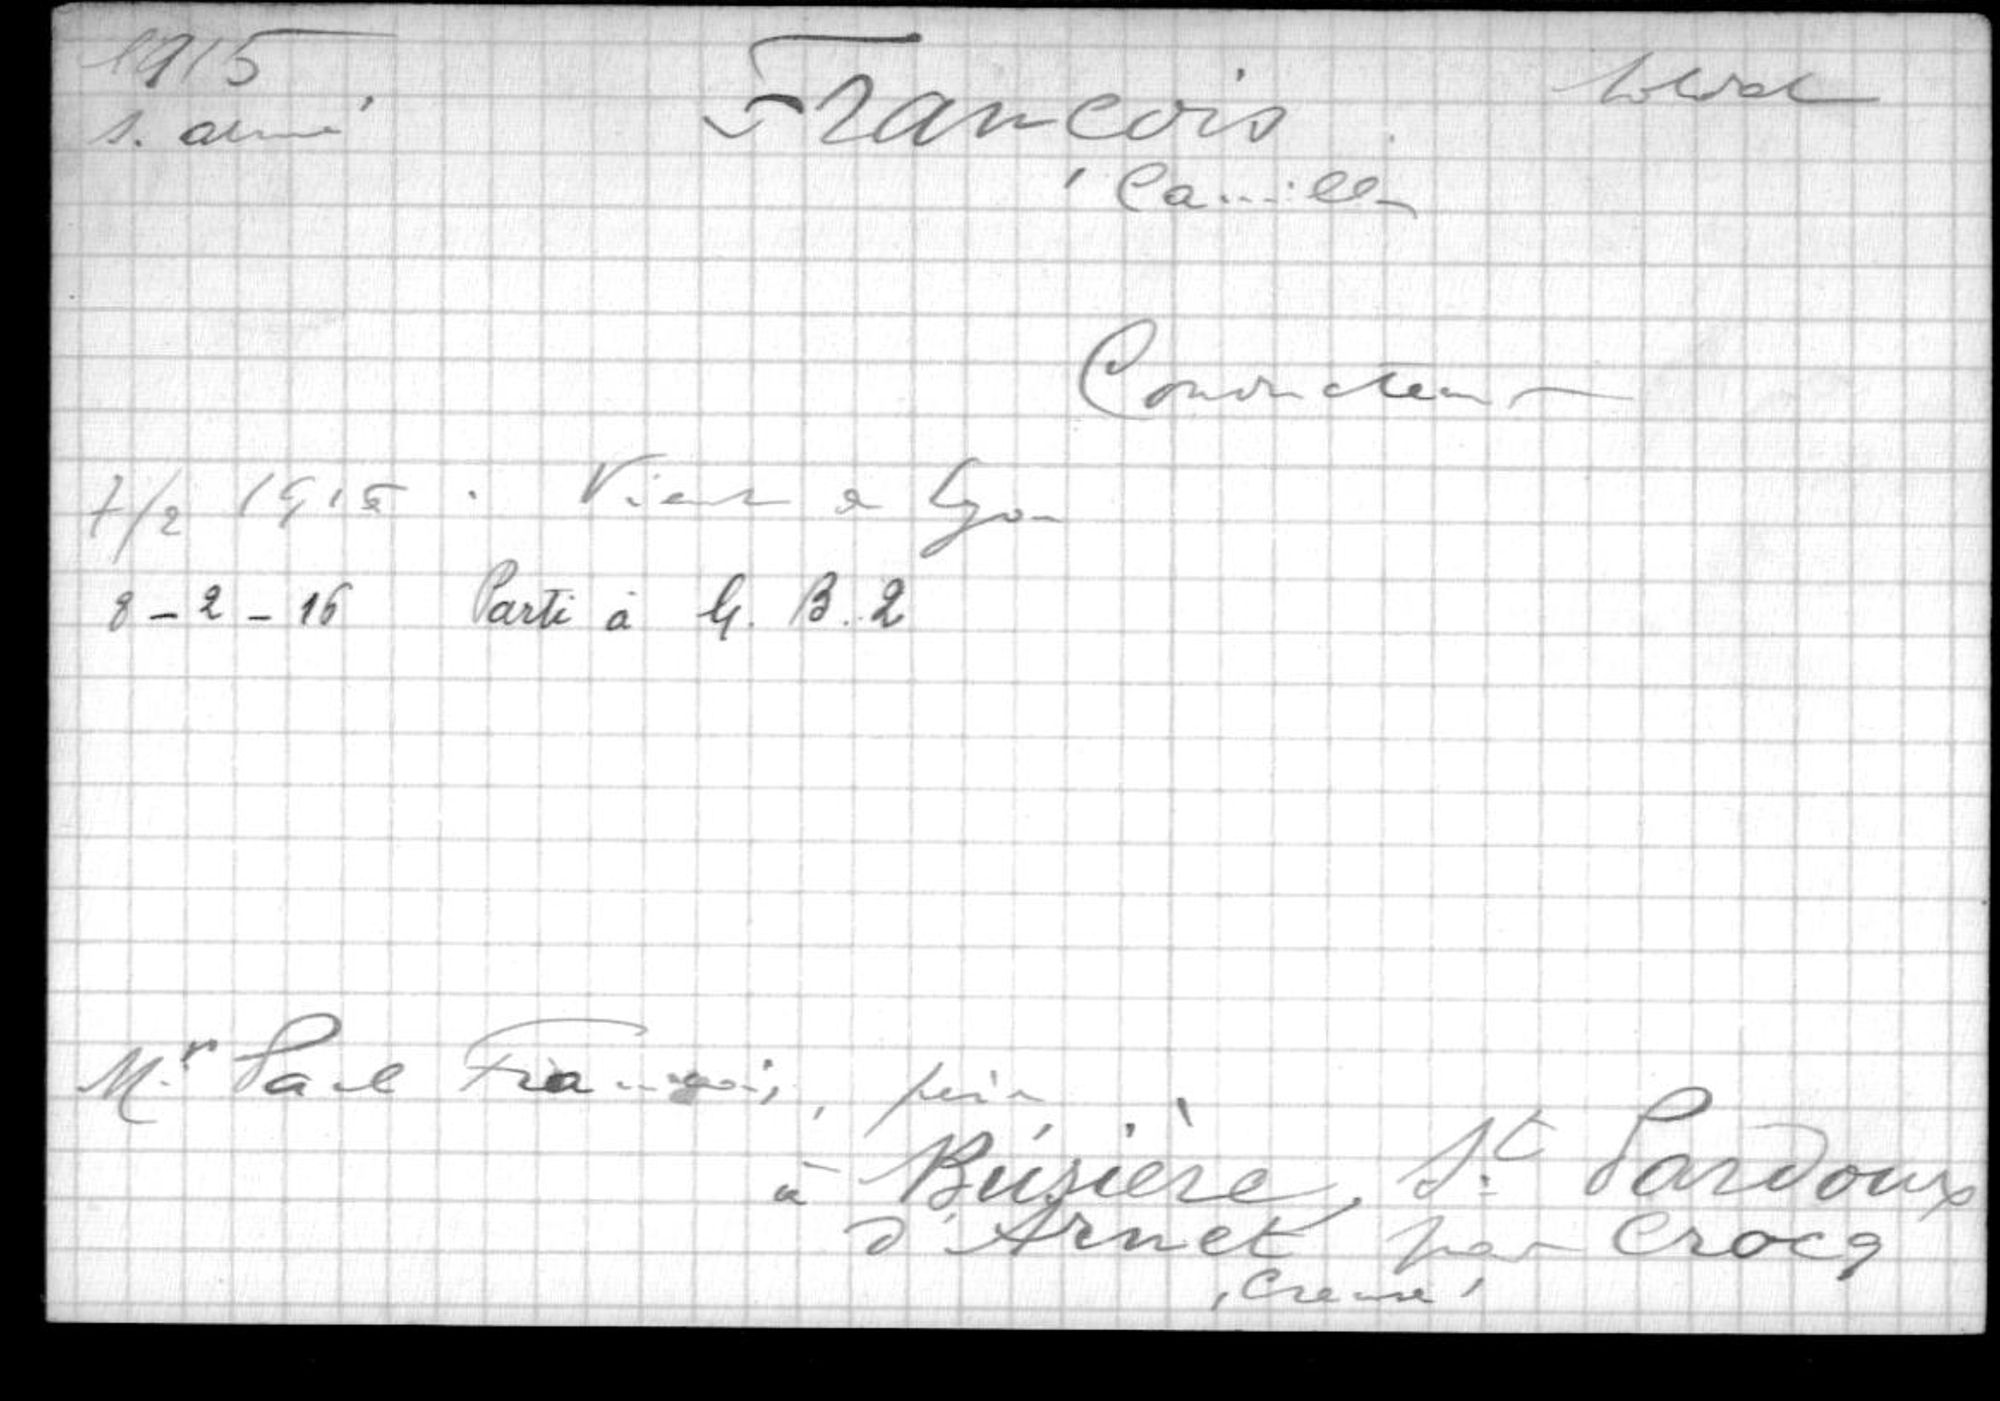 1915 François Soldat
s. armé
Camille
Conducteur
7/2 1916. Vient de Lyon
8-2-16 Parti à G. B. 2
Mr Paul François, père
à Busière, St Pardoux
d'Arnet par Crocq
Creuse